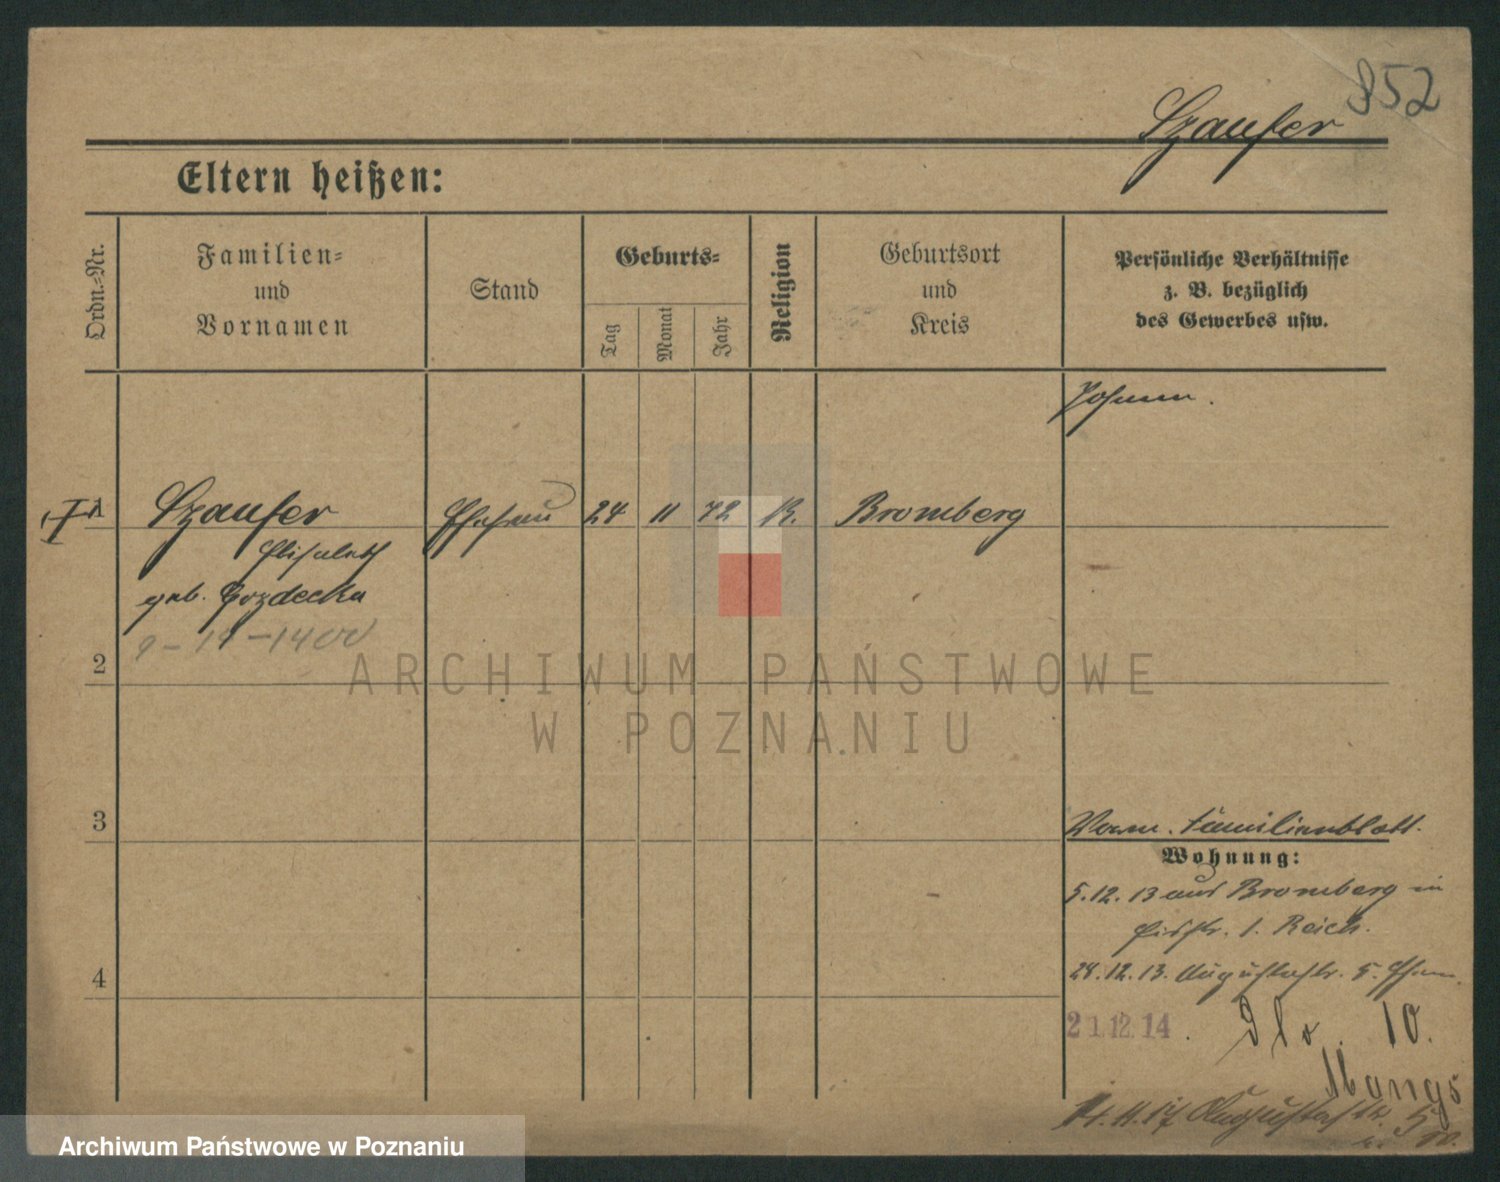 952
Szaufer
Eltern heißen:
Ordn.-Nr.
Familien-
und
Vornamen
Stand
Geburts-
Tag
Monat
Jahr
Religion
Geburtsort
und
Kreis
Persönliche Verhältnisse
z. B. bezüglich
des Gewerbes usw.
1
Szaufer
Ehefrau
24
11
72
K.
Bromberg
Elisabeth
geb. Gozdecka
2
ARCHIWUM PAŃSTWOWE
W POZNANIU
3
Verm. Familienblatt.
Wohnung:
5.12.13 aus Bromberg in
1. Reich.
4
28.12.13. Augustastr. 5.
21.12.14.
10.
Augustastr. 5
Archiwum Państwowe w Poznaniu